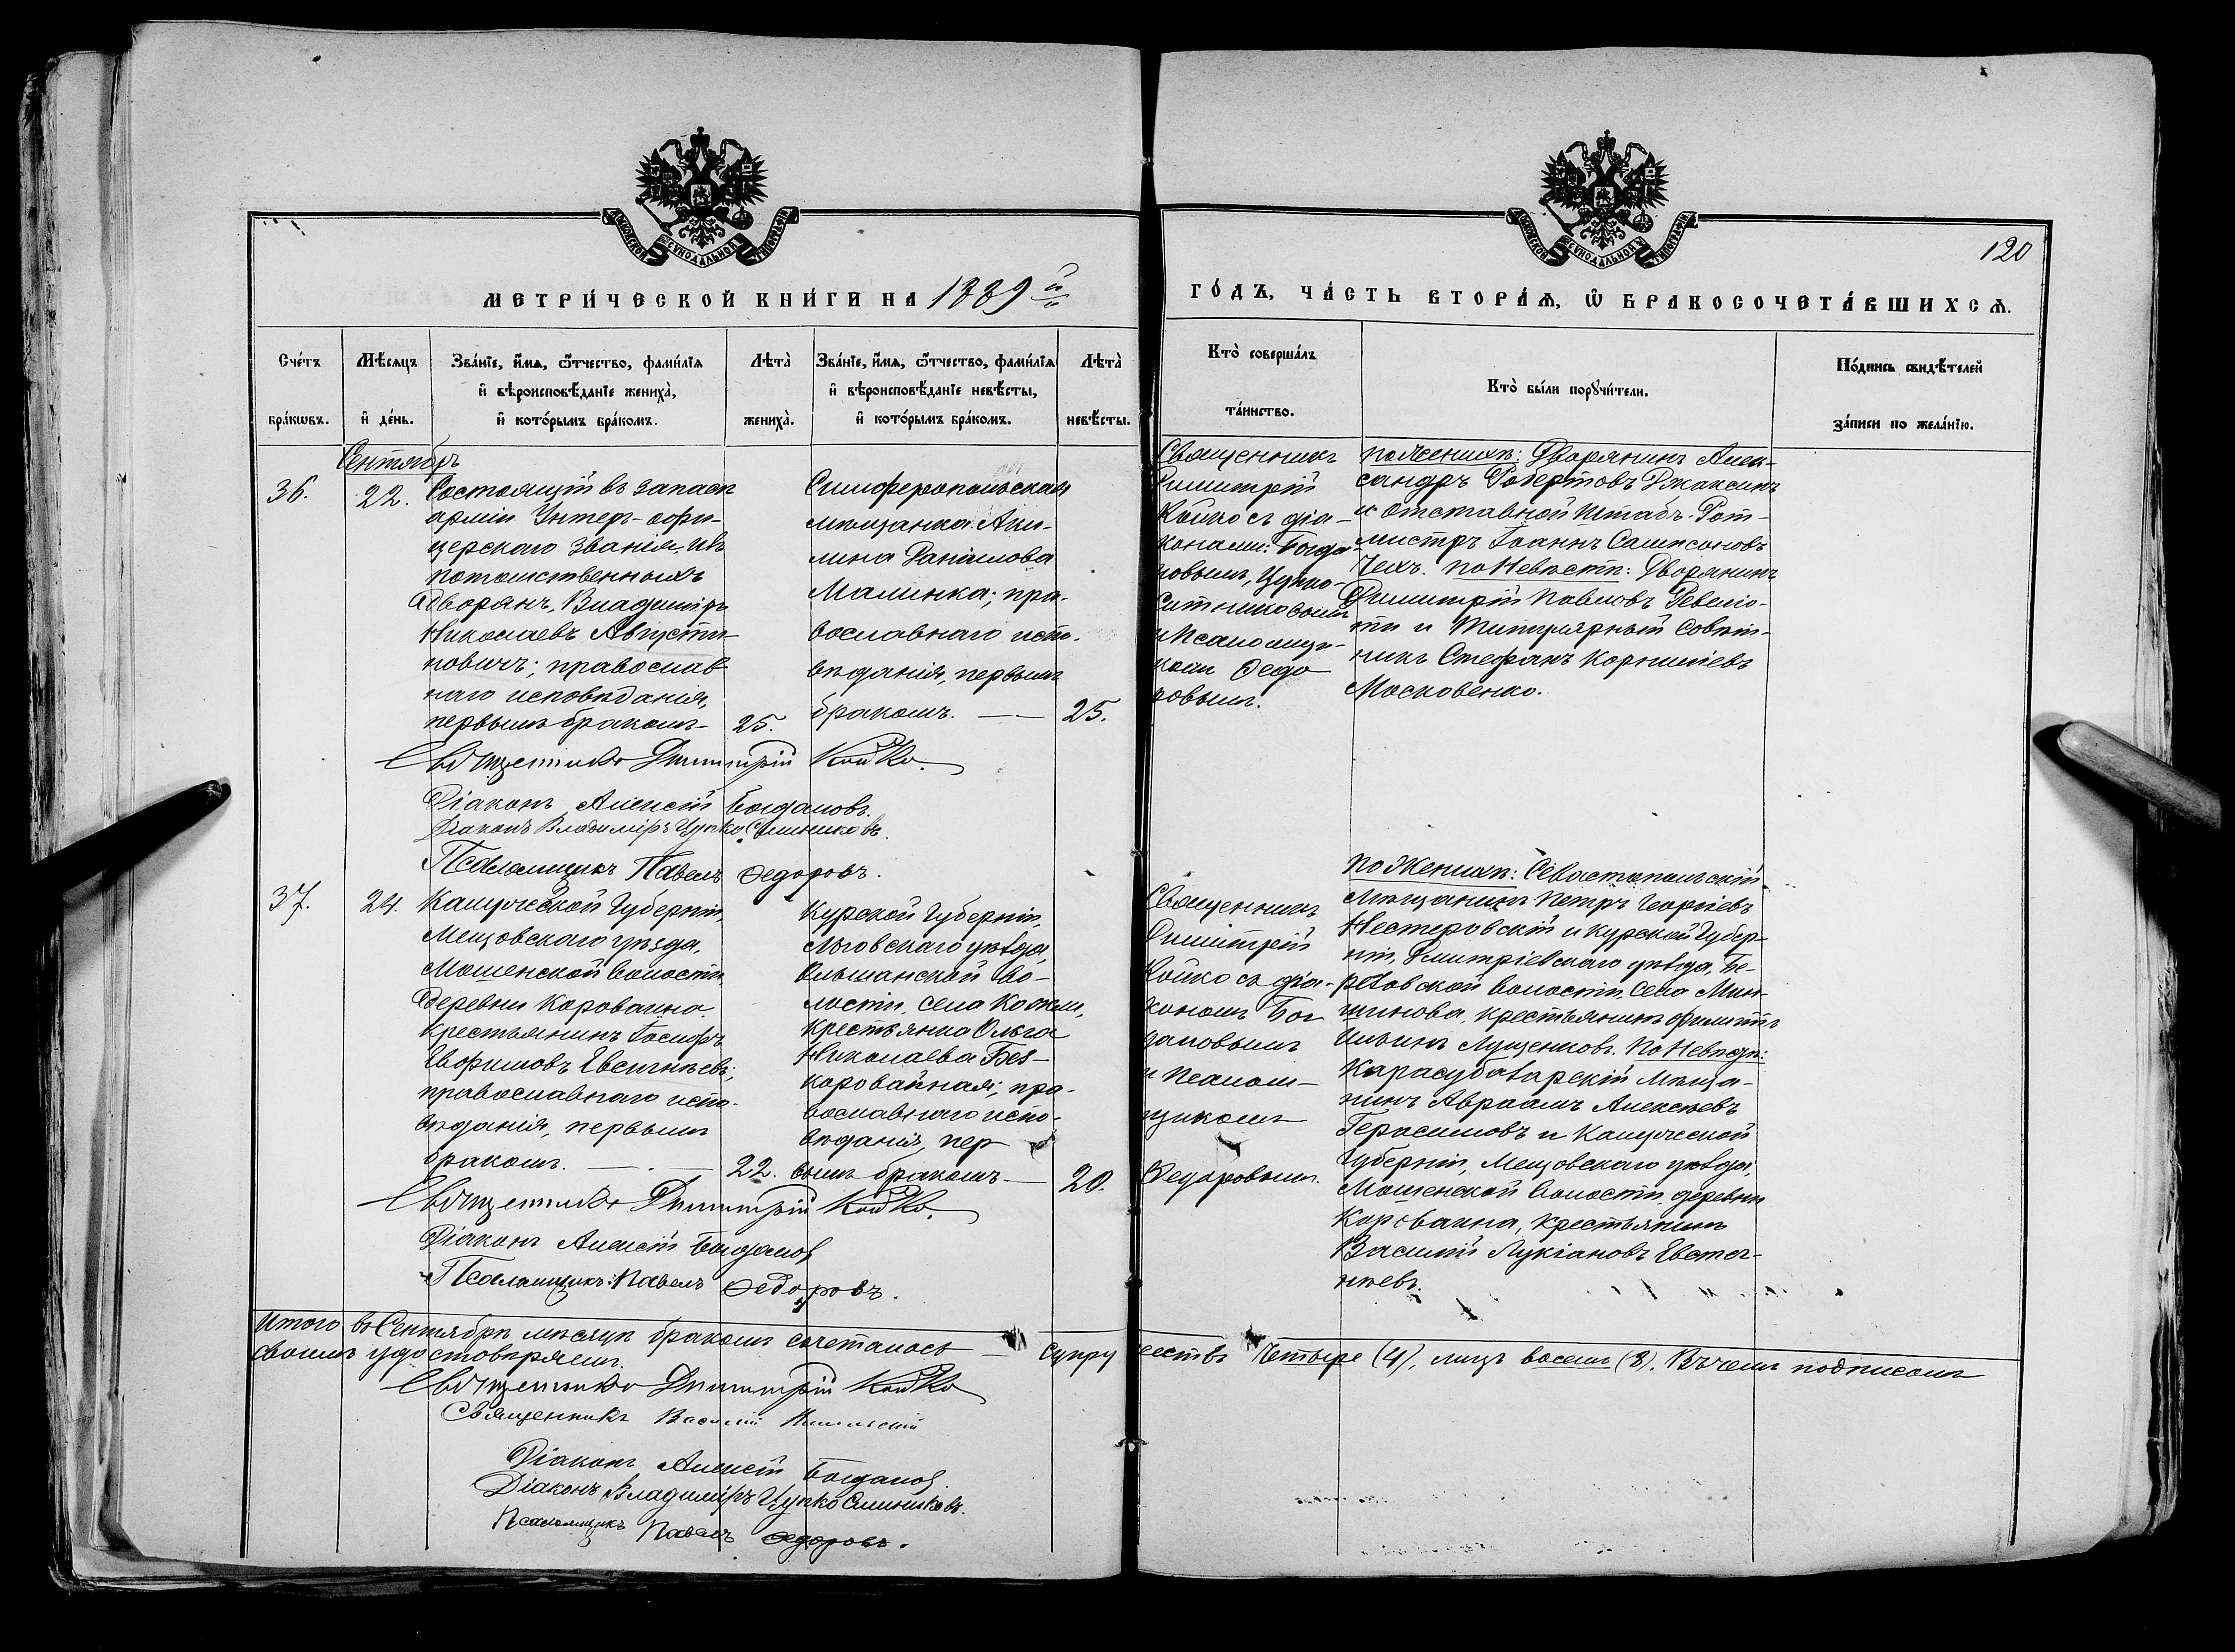 120
МЕТРИ́ЧЕСКОЙ КНИ́ГИ НА 1889й
ГО́ДЪ, ЧА́СТЬ ВТОРА́Ѧ, Ѡ БРАКОСОЧЕТА́ВШИХСѦ.
Сче́тъ бра́кѡвъ.
Мѣ́сяцъ и де́нь.
Зва́нїе, и́мѧ, ѻ҆́тчество, фами́лїѧ
и҆ вѣроисповѣ́данїе жениха̀,
и҆ кото́рымъ бра́комъ.
Лѣта̀ жениха̀.
Зва́нїе, и́мѧ, ѻ҆́тчество, фами́лїѧ
и҆ вѣроисповѣ́данїе невѣ́сты,
и҆ кото́рымъ бра́комъ.
Лѣта̀ невѣ́сты.
Кто̀ соверша́лъ
та́инство.
Кто̀ бы́ли порꙋчи́тели.
По́дпись свидѣ́телей
за́писи по жела́нїю.
Сентябрь
36.
22.
Состоящій въ запасѣ
арміи Унтеръ-офи-
церскаго званія, изъ
потомственныхъ
дворянъ, Владиміръ
Николаевъ Августи-
новичъ; православ
наго исповѣданія,
первымъ бракомъ
25.
Симферопольская
мѣщанка Аки-
лина Данилова
Малинка; пра-
вославнаго испо-
вѣданія, первымъ
бракомъ. —
25.
Священникъ
Димитрій
Койко съ діа-
конами: Богда-
новымъ, Цупко-
Ситниковымъ
и Псаломщи-
комъ Федо
ровымъ.
по Женихѣ: Дворянинъ Алек-
сандръ Робертовъ Джаксинъ
и отставной Штабъ-Рот-
мистръ Іоаннъ Сампсоновъ
Чехъ. по Невѣстѣ: Дворянинъ
Димитрій Павловъ Ревелі-
оти и Титулярный Совѣт-
никъ Стефанъ Корниліевъ
Московенко.
Священникъ Димитрій Койко.
Діаконъ Алексій Богдановъ.
Діаконъ Владиміръ Цупко-Ситниковъ.
Псаломщикъ Павелъ Федоровъ.
37.
24.
Калужской Губерніи,
Мещовскаго уѣзда,
Мошенской волости,
деревни Коровкина
крестьянинъ Іосифъ
Евфимовъ Евсигнѣевъ;
православнаго испо-
вѣданія, первымъ
бракомъ. — . —
22.
Курской Губерніи,
Льговскаго уѣзда,
Ольшанской во-
лости, села Кожли,
крестьянка Ольга
Николаева Без-
коровайная; пра-
вославнаго испо-
вѣданія, пер
вымъ бракомъ —
20.
Священникъ
Димитрій
Койко съ діа-
кономъ Бог
дановымъ
и псалом-
щикомъ
Федоровымъ.
по Женихѣ: Севастопольскій
мѣщанинъ Петръ Георгіевъ
Нестеровскій и Курской Губер-
ніи, Дмитріевскаго уѣзда, Бе-
резовской волости, села
крестьянинъ Филиппъ
Ильинъ Лущенковъ. По Невѣстѣ:
Карасубазарскій мѣща-
нинъ Авраамъ Алексѣевъ
Герасимовъ и Калужской
Губерніи, Мещовскаго уѣзда,
Мошенской волости, деревни
крестьянинъ
Василій Лукіановъ Евсиг-
нѣевъ.
Священникъ Димитрій Койко.
Діаконъ Алексій Богдановъ
Псаломщикъ: Павелъ Федоровъ.
Итого въ Сентябрѣ мѣсяцѣ бракомъ сочеталось — супружествъ Четыре (4), лицъ восемь (8). Въ чемъ подписомъ
своимъ удостовѣряемъ.
Священникъ Димитрій Койко
Священникъ Василій Никольскій
Діаконъ Алексій Богдановъ
Діаконъ Владиміръ Цупко-Ситниковъ.
Псаломщикъ Павелъ Федоровъ.